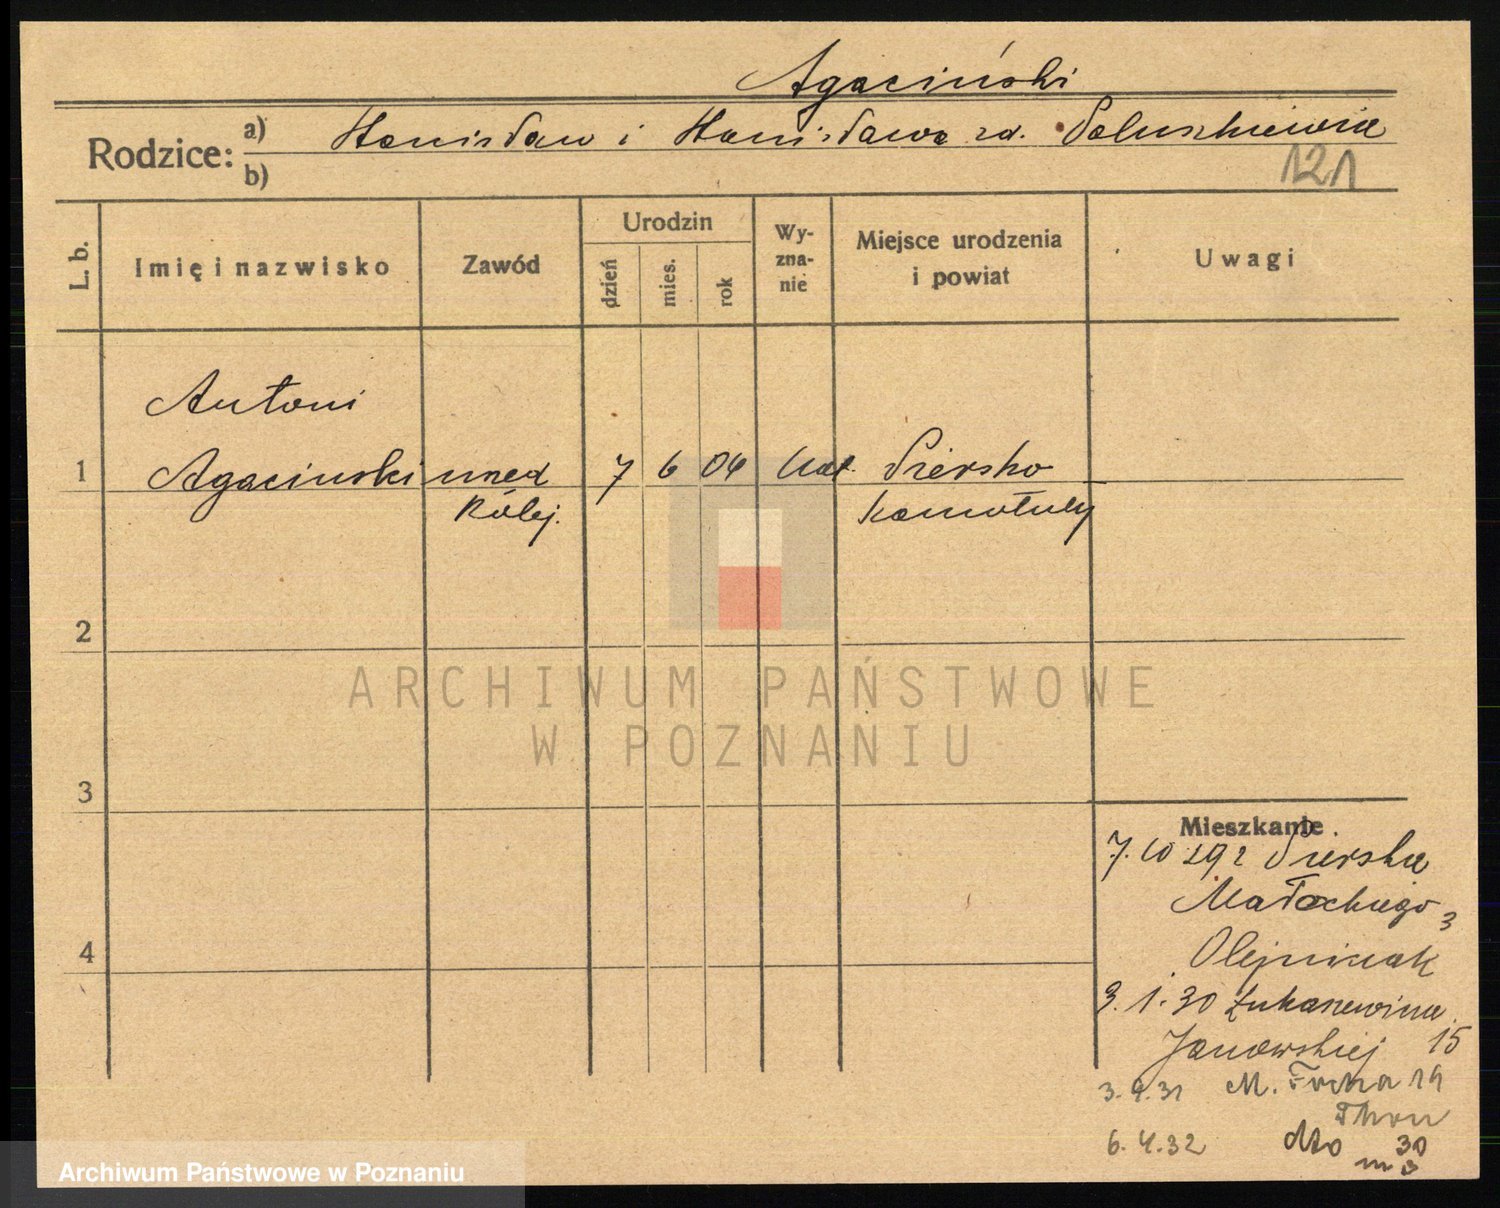 Agaciński
Rodzice: a) Stanisław i Stanisława zd. Paluszkiewicz
b)
121
L. b.
Imię i nazwisko
Zawód
Urodzin
dzień
mies.
rok
Wy-
zna-
nie
Miejsce urodzenia
i powiat
Uwagi
Antoni
1 Agaciński urzed 7 6 04 kat. Piersko
Kolej. Szamotuły
2
ARCHIWUM PAŃSTWOWE
W POZNANIU
3
Mieszkanie
7. 10 292 Piersko
Matockiego 3
4
Olejniczak
3. 1. 30 Łukaszewicza 15
Janowskiej
3. 9. 31 M. Focha 19
6. 4. 32 dto 30
m 3
Archiwum Państwowe w Poznaniu